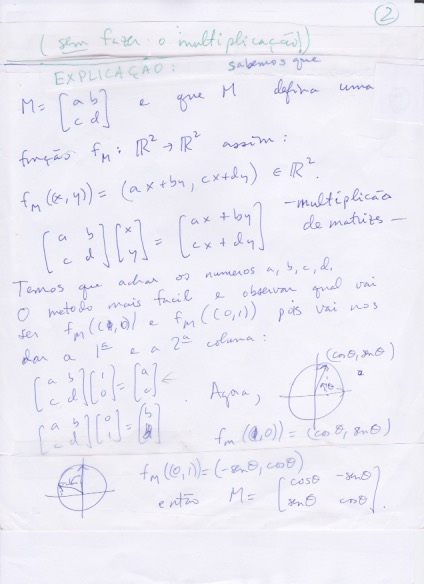 2
( sem fazer o multiplicação!)
EXPLICAÇÃO: sabemos que
M = [a b; c d] e que M defina uma
função f_M: ℝ² → ℝ² assim:
f_M(x, y) = (ax + by, cx + dy) ∈ ℝ².
[a b; c d] [x; y] = [ax + by; cx + dy] - multiplicão de matrizes -
Temos que achar os numeros a, b, c, d.
O metodo mais facil e observar qual vai
ser f_M((1,0)) e f_M((0,1)) pois vai nos
dar a 1ª e a 2ª coluna:
[a b; c d] [1; 0] = [a; c] ← . Agora,
(cosθ, senθ)
θ
[a b; c d] [0; 1] = [b; d]
f_M(1,0)) = (cosθ, senθ)
f_M(0,1)) = (-senθ, cosθ)
então M = [cosθ -senθ; senθ cosθ].